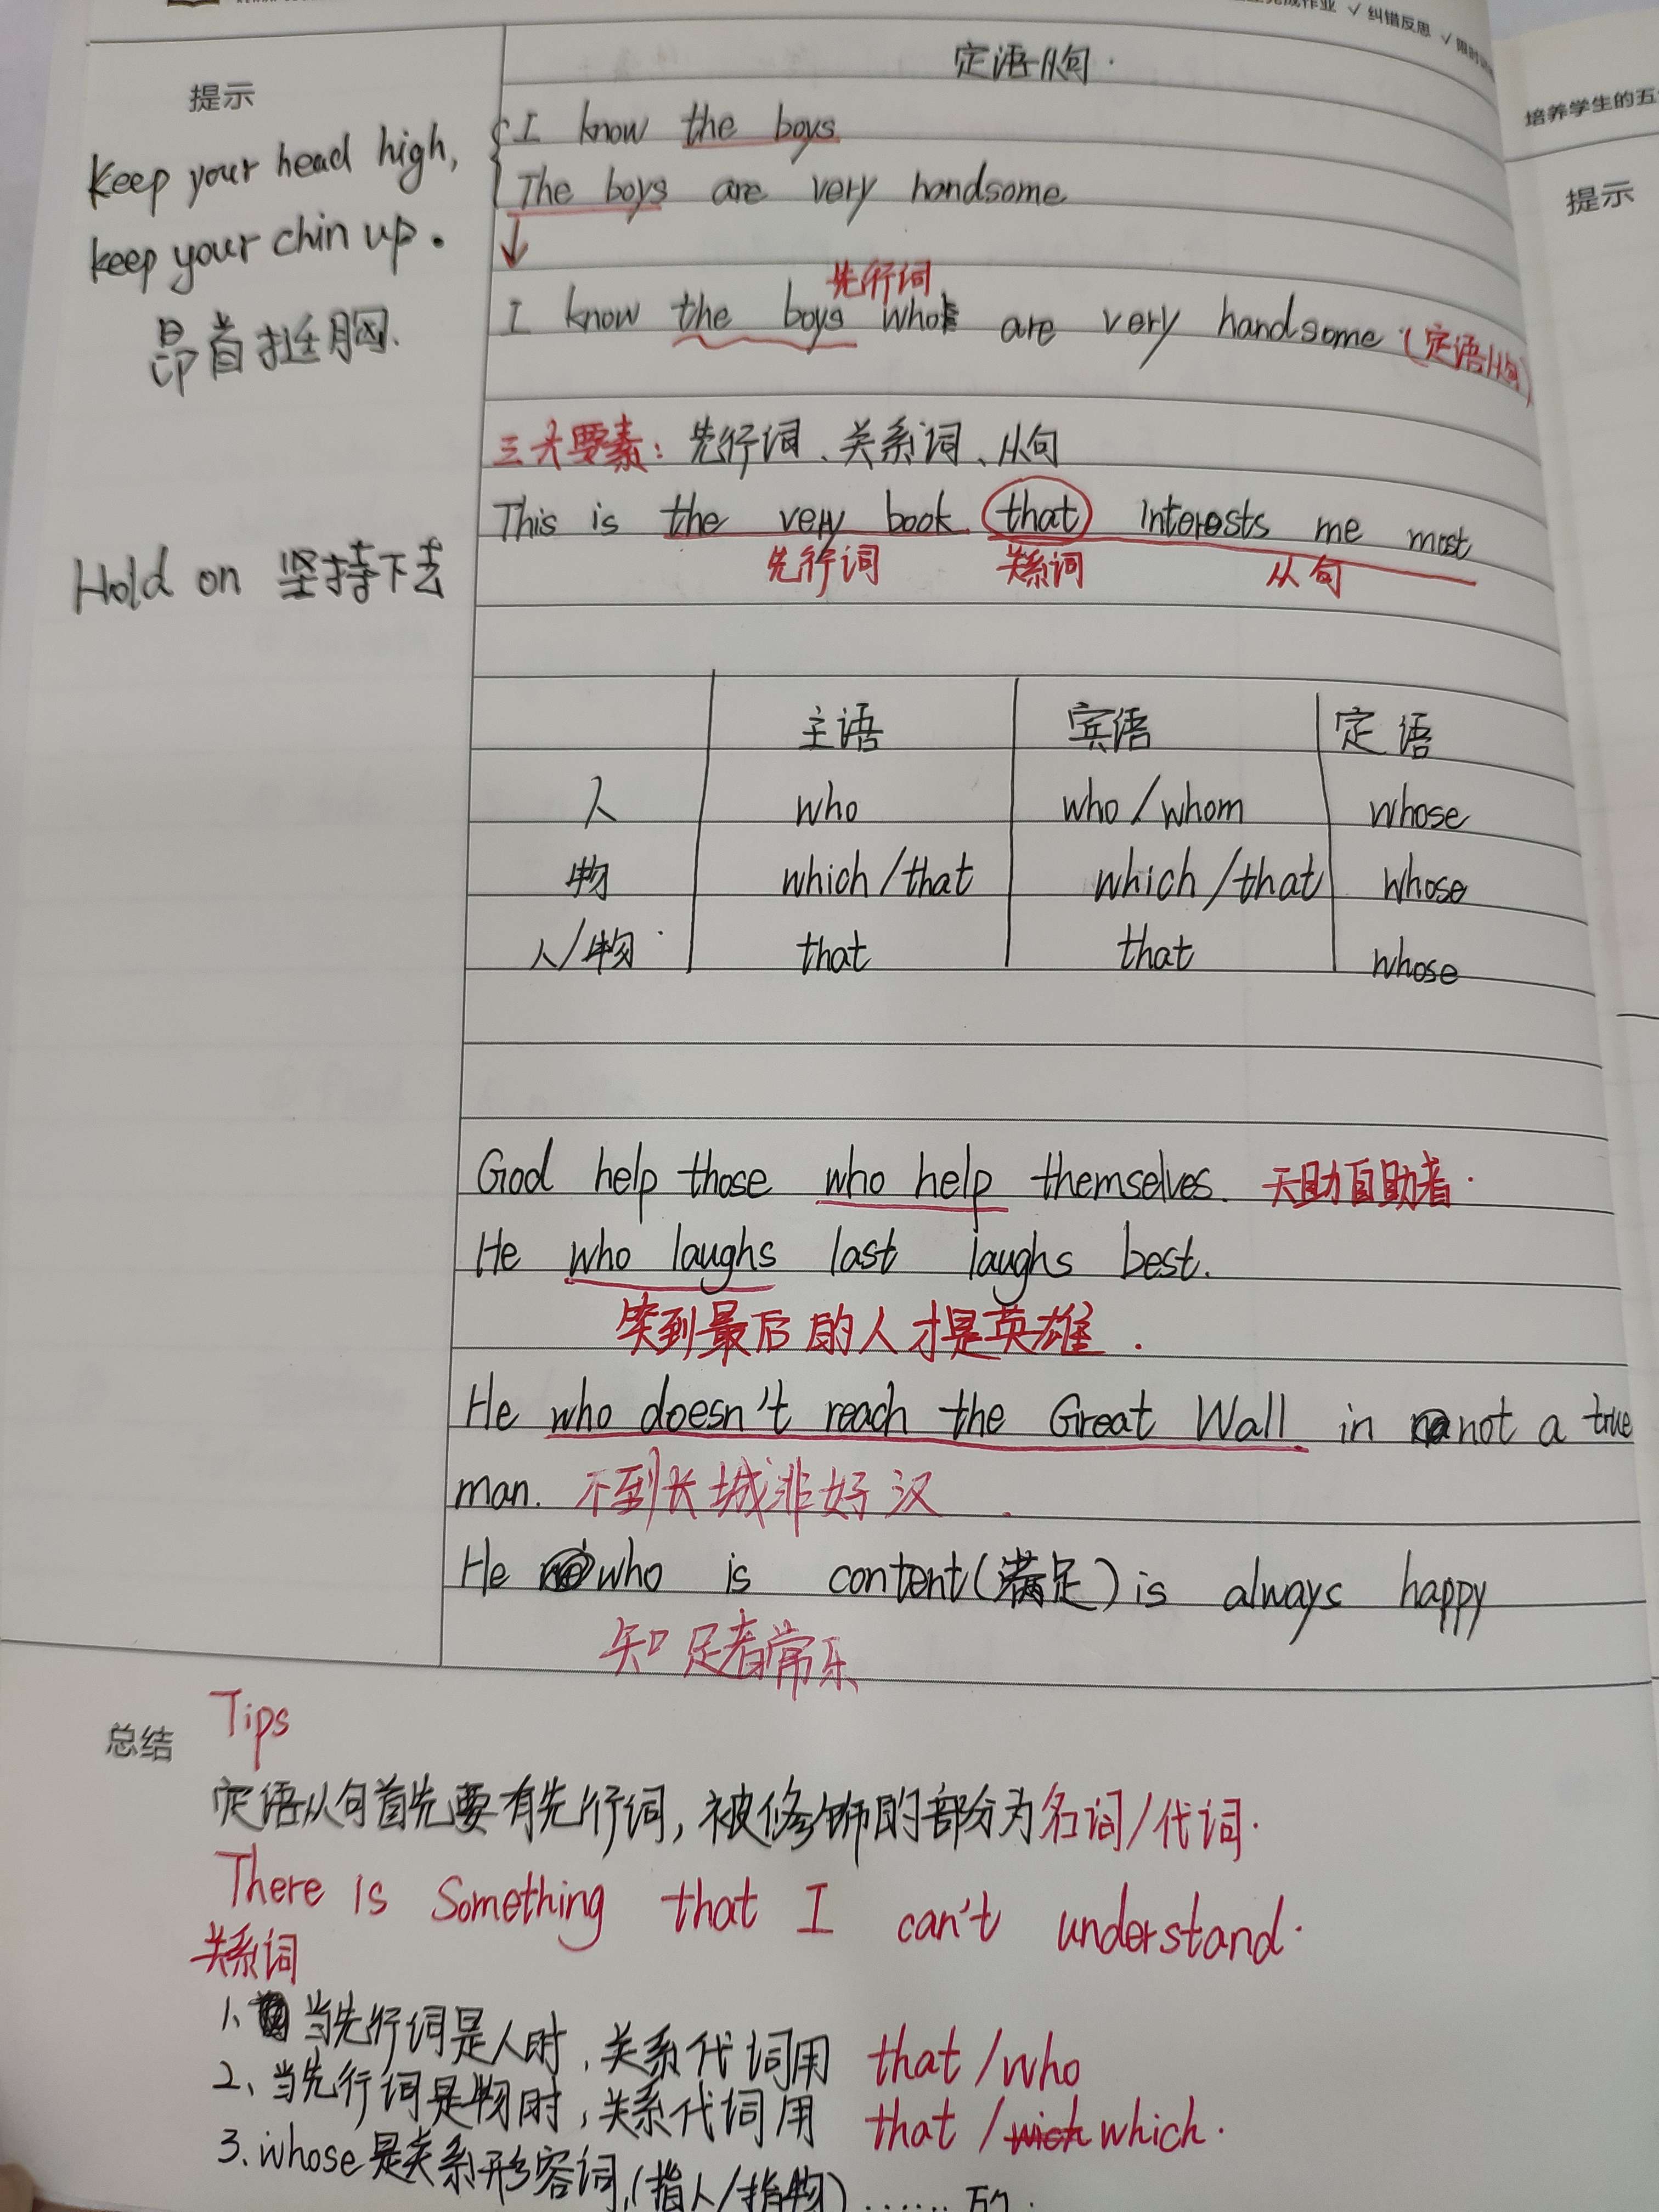 完成作业 √ 纠错反思 √ 限时
培养学生的五
提示
提示
Keep your head high,
keep your chin up.
昂首挺胸.
Hold on 坚持下去
定语从句.
I know the boys
The boys are very handsome
先行词
I know the boys who are very handsome (定语从句)
三大要素: 先行词、关系词、从句
This is the very book that interests me most
先行词 关系词 从句
主语 宾语 定语
人 who who/whom whose
物 which/that which/that whose
人/物 that that whose
God help those who help themselves. 天助自助者.
He who laughs last laughs best.
笑到最后的人才是英雄.
He who doesn't reach the Great Wall in not a true
man. 不到长城非好汉.
He who is content(满足) is always happy
知足者常乐
总结
Tips
定语从句首先要有先行词, 被修饰的部分为名词/代词.
There is something that I can't understand.
关系词
1、当先行词是人时, 关系代词用 that/who
2、当先行词是物时, 关系代词用 that/which.
3. whose是关系形容词,(指人/指物) ......的.